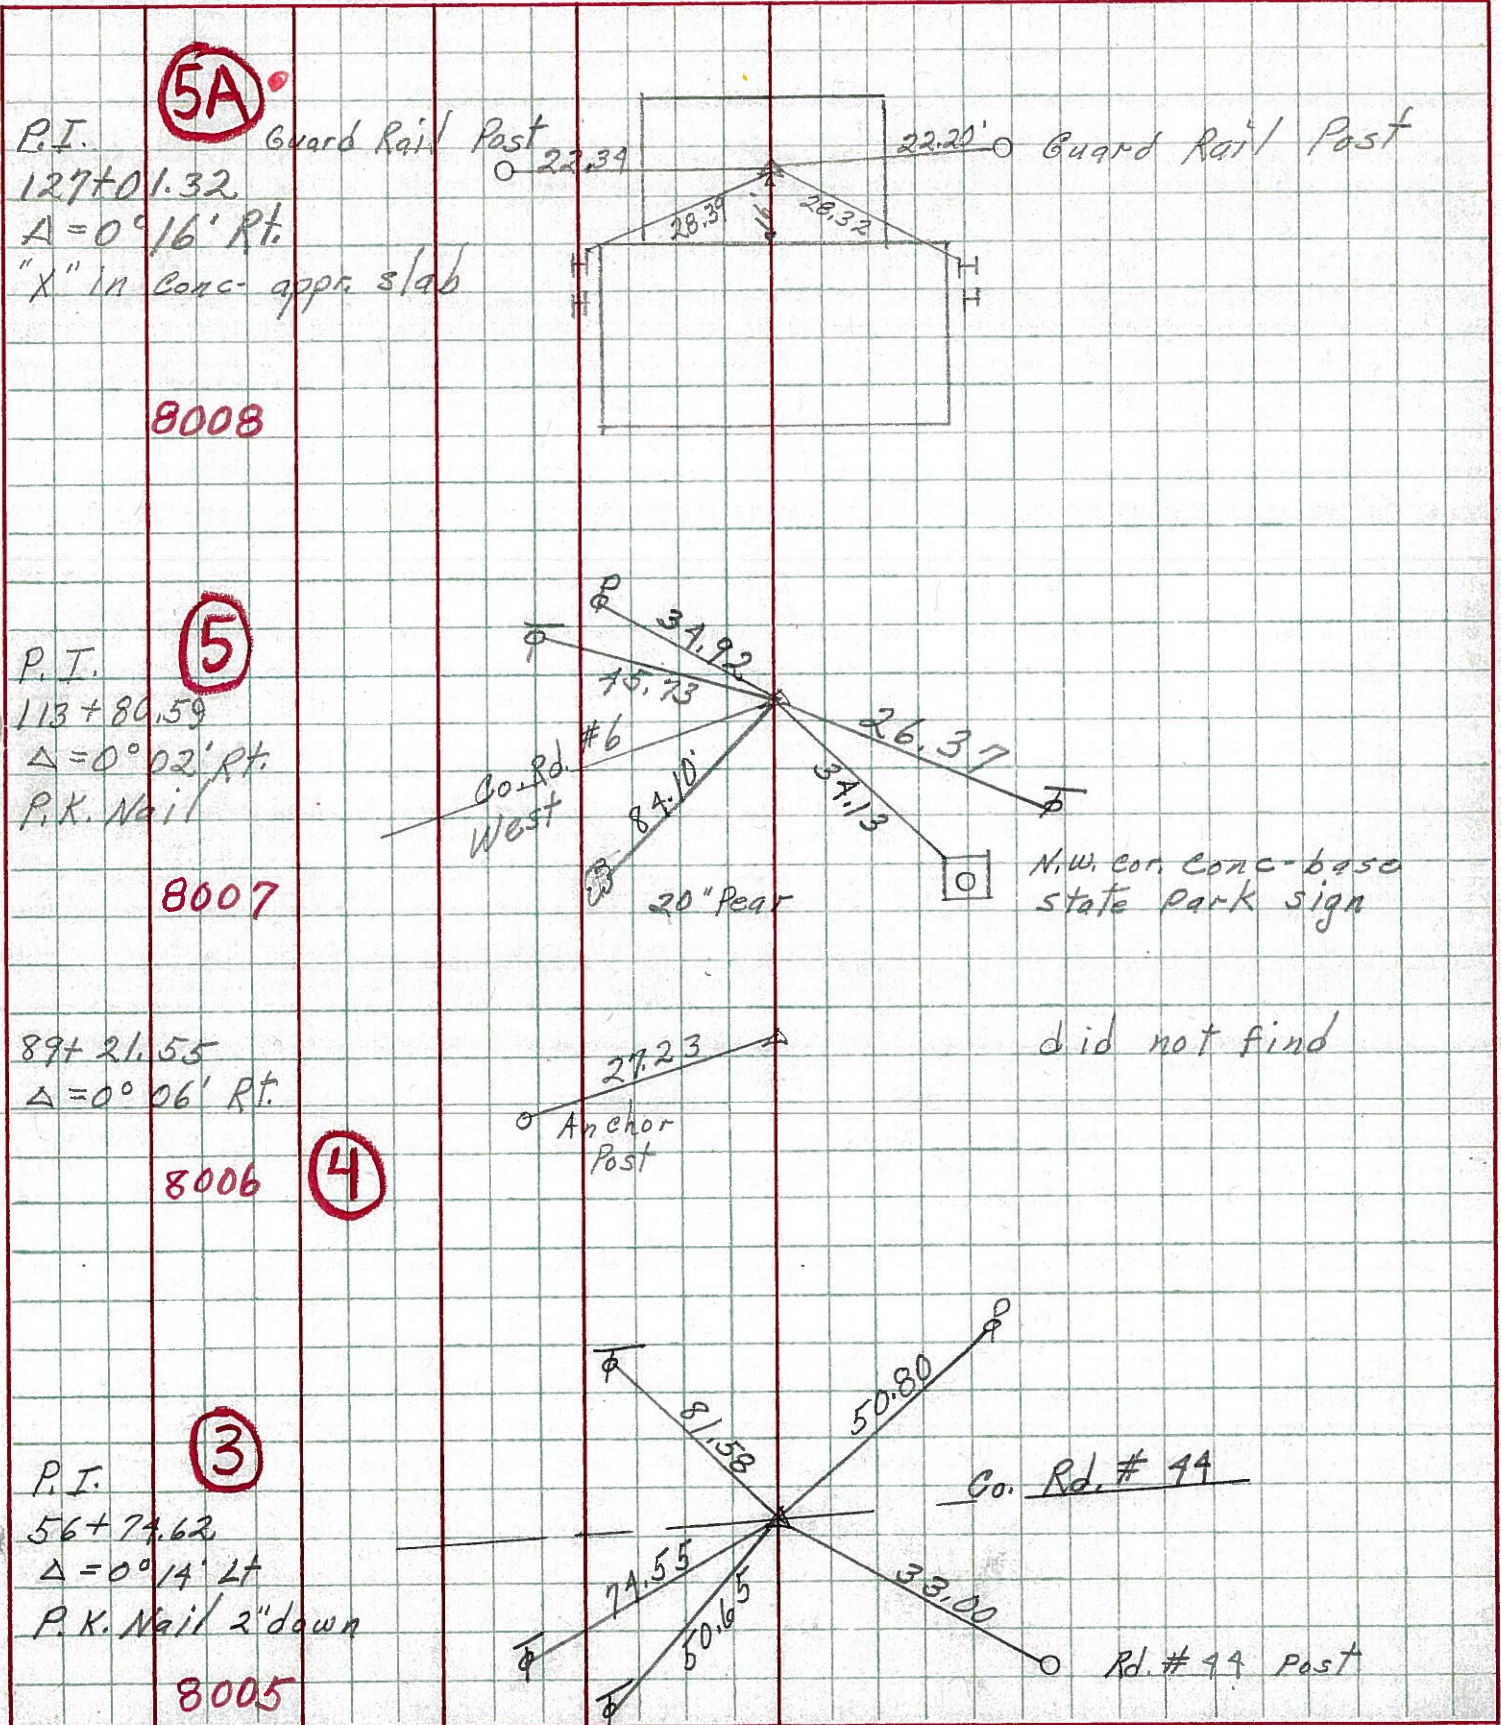 5A
P.I.
127+01.32
Δ=0°16' Rt.
"X" in conc- appr. slab
Guard Rail Post
22.34
22.20'
Guard Rail Post
28.39
28.32
8008
5
P.I.
113+80.59
Δ=0°02' Rt.
P.K. Nail
8007
34.92
45.73
Co. Rd. #6
West
84.10'
20" Pear
26.37
34.13
N.W. cor. conc-base
state Park sign
89+21.55
Δ=0°06' Rt.
8006
4
27.23
Anchor
Post
did not find
3
P.I.
56+74.62
Δ=0°14' Lt
P.K. Nail 2" down
8005
81.58
50.80
Co. Rd. # 44
74.55
50.65
33.00
Rd. # 44 Post